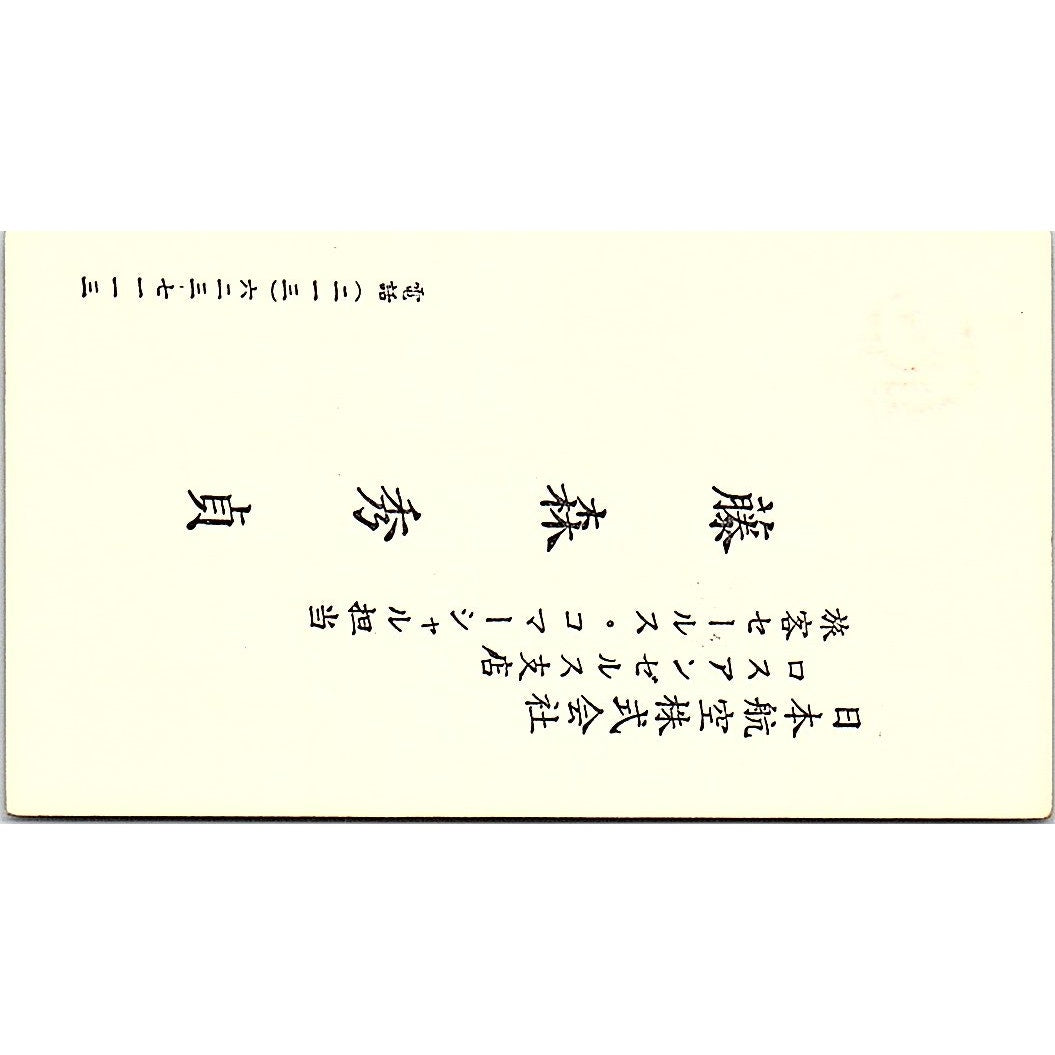 日本航空株式会社
ロスアンゼルス支店
旅客セールス・コマーシャル担当
藤森秀貞
電話（二一三）六二三・七一一三